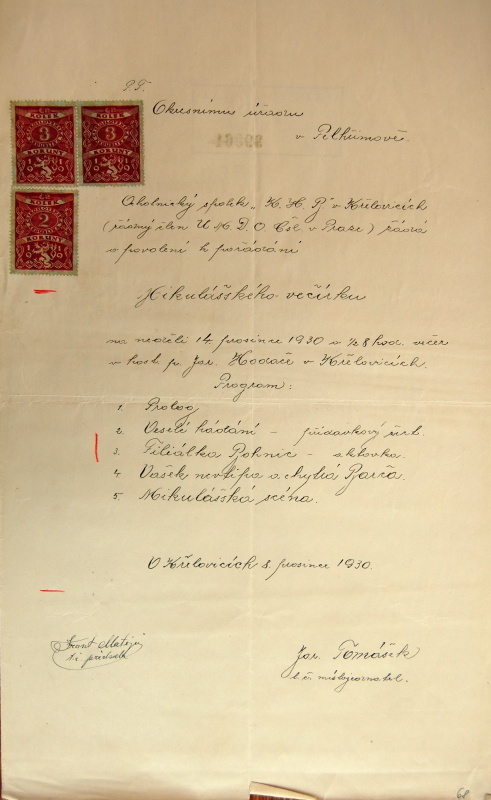 P.T.
Okresnímu úřadu
v Pelhřimově.
ČR.
KOLEK
3
KORUNY
1919
ČR.
KOLEK
3
KORUNY
1919
ČR.
KOLEK
2
KORUNY
1919
Ochotnický spolek „K. H. B" v Křelovicích
(řádný člen Ú. M. D. O. Čsl. v Praze) žádá
o povolení k pořádání
Mikulášského večírku
na neděli 14 prosince 1930 o ½ 8 hod. večer
v host. p. Jos. Hodače v Křelovicích.
Program:
1. Prolog
2. Veselé hádání – přídavkový žert.
3. Filiálka Bohnic – aktovka.
4. Vašek nevtipa a chytrá Barča.
5. Mikulášská scéna.
V Křelovicích 8. prosince 1930.
Frant. Matějů
t. č. předseda
Jos. Tomášek
t. č. místojednatel.
68